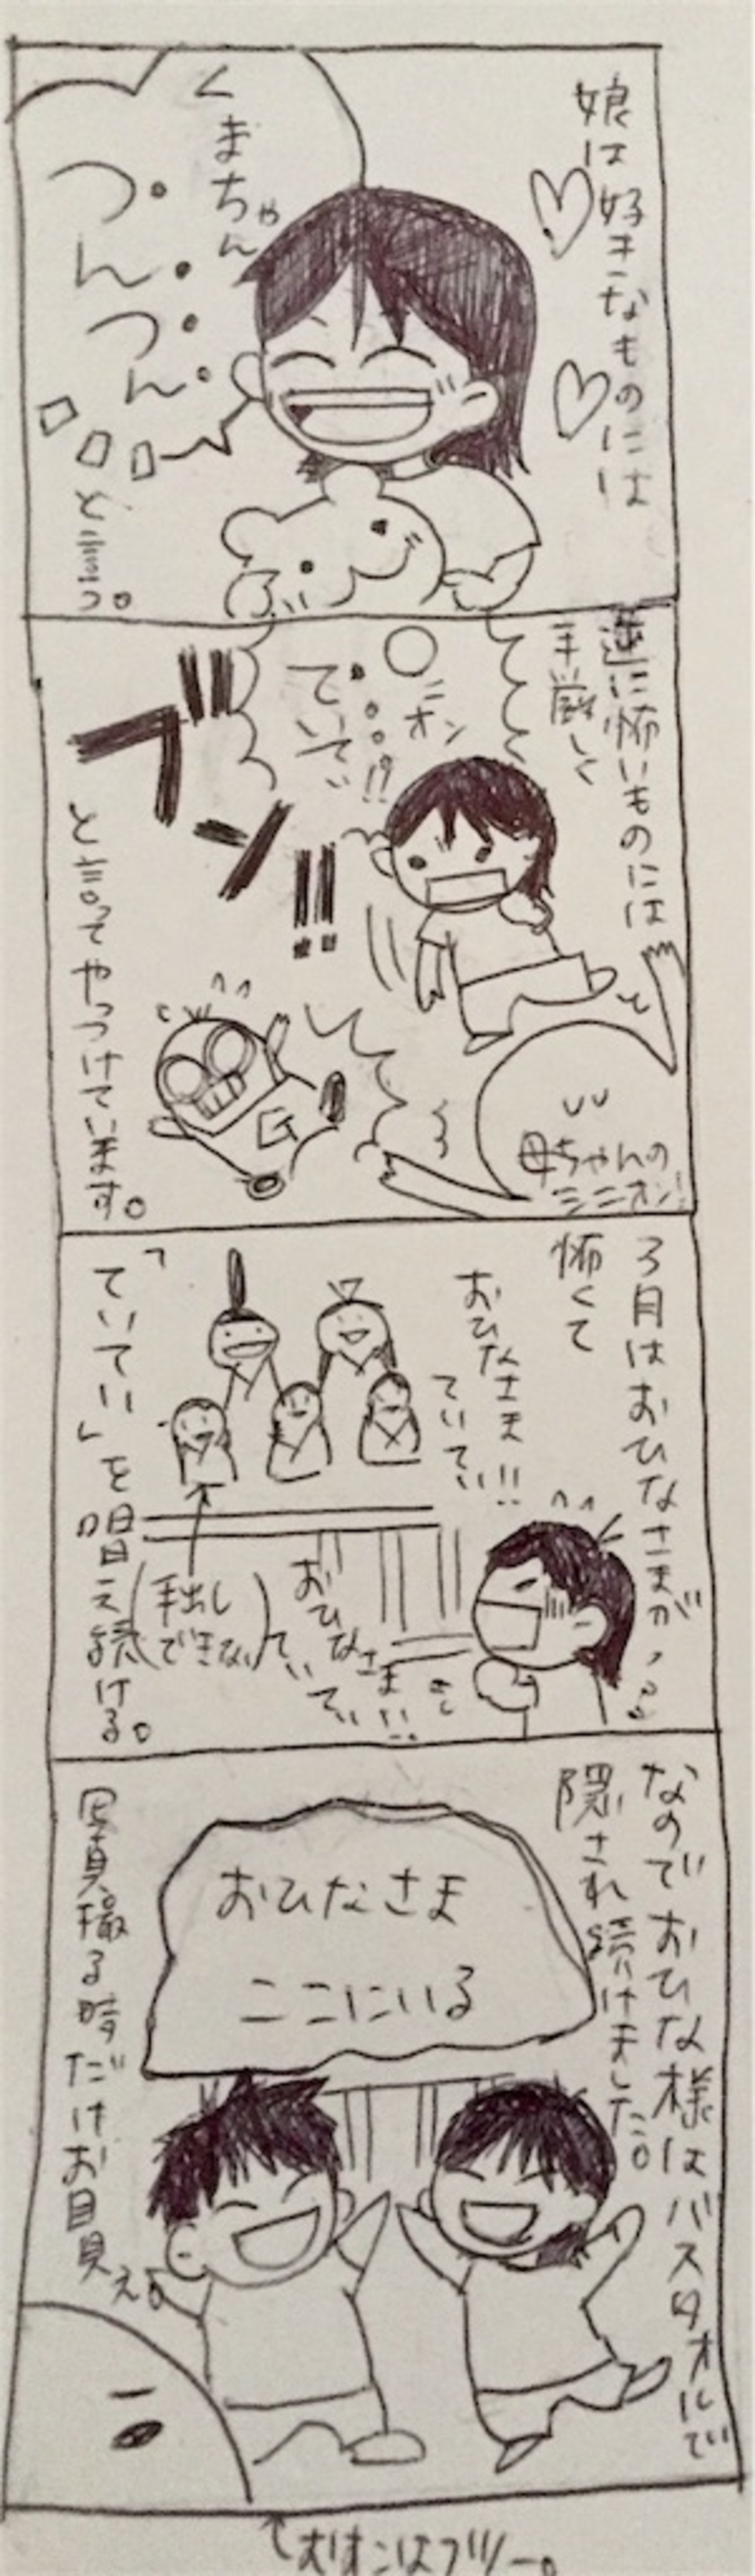 娘は好きなものには
くまちゃん
つ。ん。つ。ん。
と言う。
逆に怖いものには
手厳しく
○ニオン
てぃてぃ!!
ブン!!
母ちゃんの
ミニオン!
G
と言ってやっつけています。
3月はおひなさまが、
怖くて
おひなさま
ていてい!!
おひなさま
ていてい!!
(手出し
できない)
「ていてい」を唱え続ける。
なのでおひな様はバスタオルで
隠され続けました。
おひなさま
ここにいる
写真撮る時だけお目見え